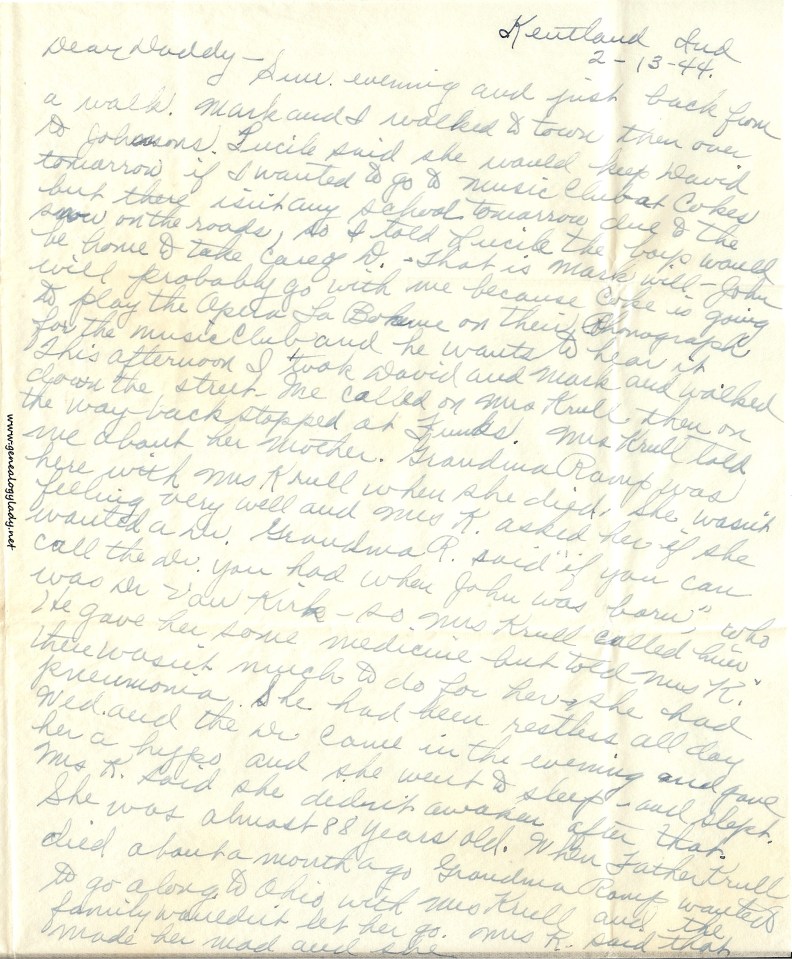 Kentland Ind
2-13-44.
Dear Daddy - Sun. evening and just back from
a walk. Mark and I walked to town then over
to Johnsons. Lucile said she would keep David
tomorrow if I wanted to go to Music Club at Cokes
but there isn't any school tomorrow due to the
snow on the roads, so I told Lucile the boys would
be home to take care of D. - That is Mark will - John
will probably go with me because Coke is going
to play the Opera La Boheme on their Phonograph
for the music Club and he wants to hear it
This afternoon I took David and Mark and walked
down the street. We called on Mrs Krull then on
the way back stopped at Funks. Mrs Krull told
me about her mother. Grandma Ramp was
here with Mrs Krull when she died. She wasn't
feeling very well and Mrs K. asked her if she
wanted a Dr. Grandma R. said "if you can
call the Dr. you had when John was born," who
was Dr Van Kirk - so Mrs Krull called him
He gave her some medicine but told Mrs K.
there wasn't much to do for her, she had
pneumonia. She had been restless all day
Wed. and the Dr came in the evening and gave
her a hypo and she went to sleep - and slept.
Mrs K. said she didn't awaken after that.
She was almost 88 years old. When Father Krull
died about a month ago Grandma Ramp wanted
to go along to Ohio with Mrs Krull and the
family wouldn't let her go. Mrs K. said that
made her mad and she
www.genealogylady.net